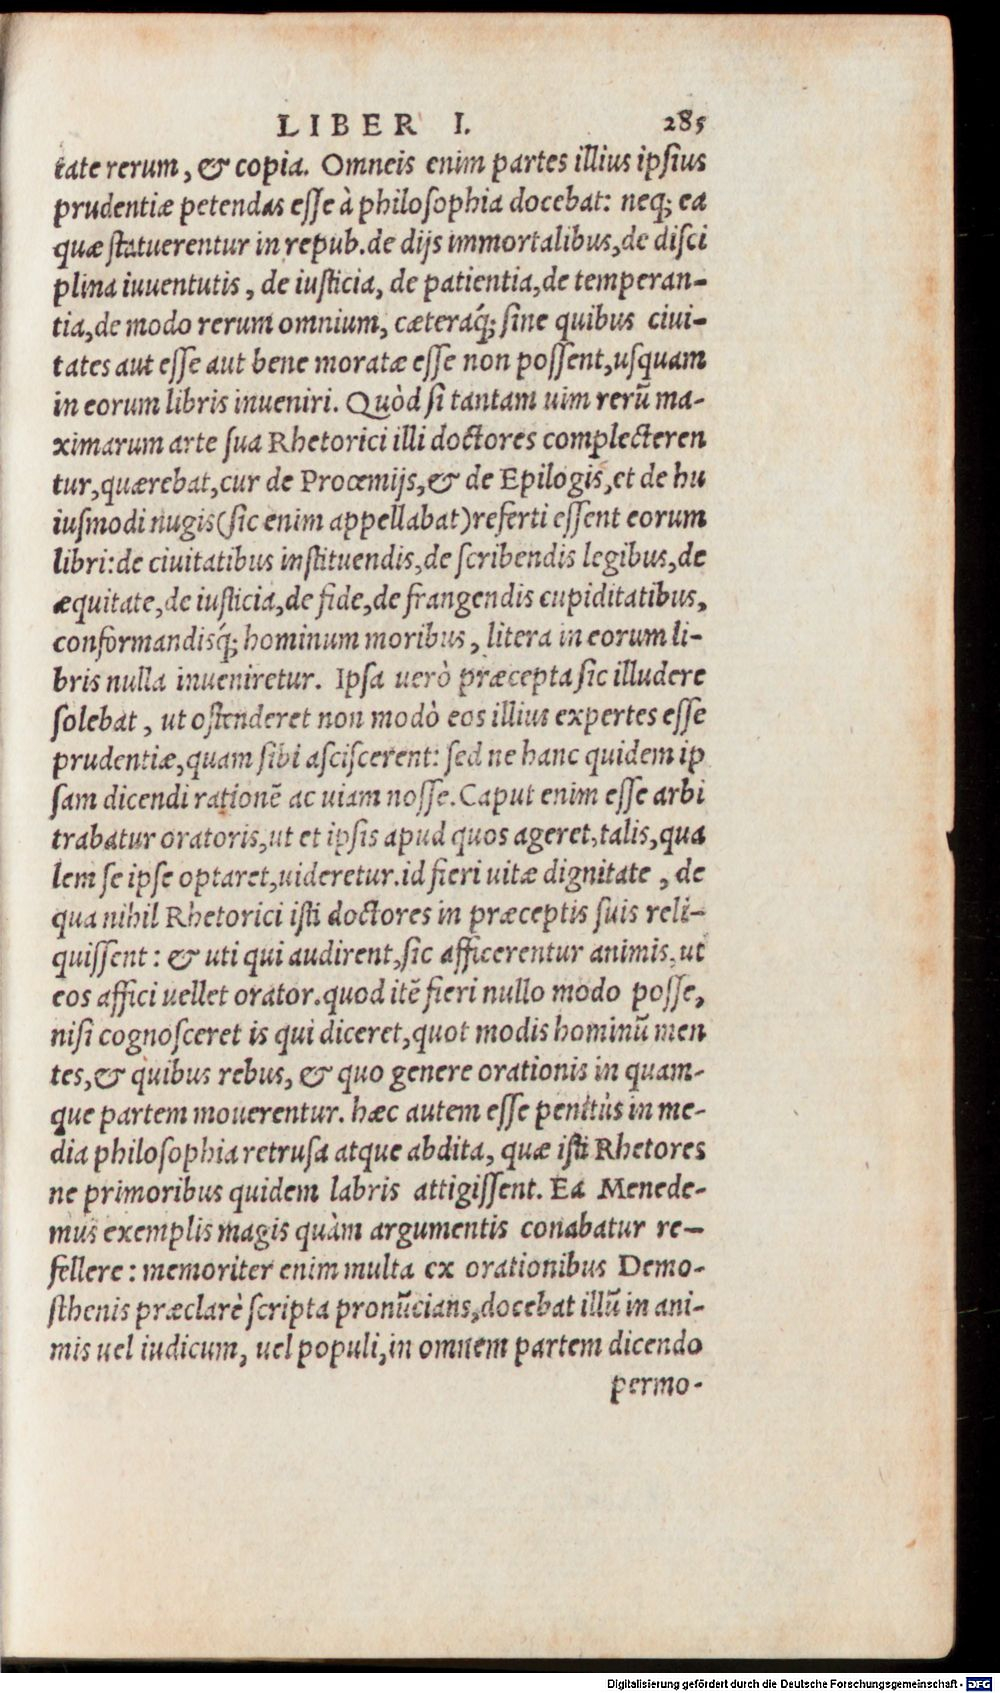 LIBER I. 285
tate rerum, & copia. Omneis enim partes illius ipsius
prudentiæ petendas esse à philosophia docebat: neq; ea
quæ statuerentur in repub. de dijs immortalibus, de disci
plina iuuentutis, de iusticia, de patientia, de temperan-
tia, de modo rerum omnium, cæteraq́; sine quibus ciui-
tates aut esse aut bene moratæ esse non possent, usquam
in eorum libris inueniri. Quòd si tantam uim rerũ ma-
ximarum arte sua Rhetorici illi doctores complecteren
tur, quærebat, cur de Proœmijs, & de Epilogis, et de hu
iusmodi nugis (sic enim appellabat) referti essent eorum
libri: de ciuitatibus instituendis, de scribendis legibus, de
æquitate, de iusticia, de fide, de frangendis cupiditatibus,
conformandisq́; hominum moribus, litera in eorum li-
bris nulla inueniretur. Ipsa uerò præcepta sic illudere
solebat, ut ostenderet non modò eos illius expertes esse
prudentiæ, quam sibi asciscerent: sed ne hanc quidem ip
sam dicendi rationẽ ac uiam nosse. Caput enim esse arbi
trabatur oratoris, ut et ipsis apud quos ageret, talis, qua
lem se ipse optaret, uideretur. id fieri uitæ dignitate, de
qua nihil Rhetorici isti doctores in præceptis suis reli-
quissent: & uti qui audirent, sic afficerentur animis, ut
eos affici uellet orator. quod itẽ fieri nullo modo posse,
nisi cognosceret is qui diceret, quot modis hominũ men
tes, & quibus rebus, & quo genere orationis in quam-
que partem mouerentur. hæc autem esse penitùs in me-
dia philosophia retrusa atque abdita, quæ isti Rhetores
ne primoribus quidem labris attigissent. Ea Menede-
mus exemplis magis quàm argumentis conabatur re-
fellere: memoriter enim multa ex orationibus Demo-
sthenis præclarè scripta pronũcians, docebat illũ in ani-
mis uel iudicum, uel populi, in omnem partem dicendo
permo-
Digitalisierung gefördert durch die Deutsche Forschungsgemeinschaft - DFG